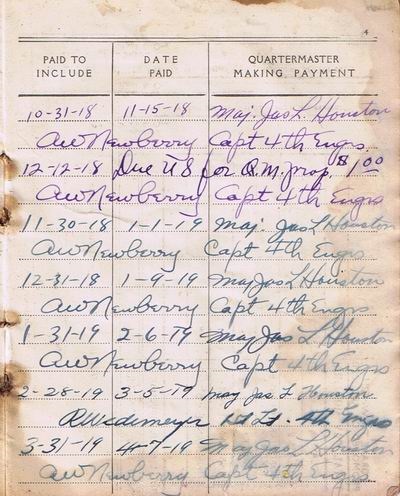 4
PAID TO INCLUDE DATE PAID QUARTERMASTER MAKING PAYMENT
10-31-18 11-15-18 Maj. Jas L. Houston
AW Newberry Capt 4th Engrs.
12-12-18 Due US for Q.M. prop. $1.00
AW Newberry Capt 4th Engrs
11-30-18 1-1-19 Maj. Jas L Houston
AW Newberry Capt 4th Engrs
12-31-18 1-9-19 Maj Jas L Houston
AW Newberry Capt 4th Engrs
1-31-19 2-6-19 Maj Jas L Houston
AW Newberry Capt 4th Engrs
2-28-19 3-5-19 Maj Jas L Houston
1st Lt. 4th Engrs
3-31-19 4-7-19 Maj Jas L. Houston
AW Newberry Capt 4th Engrs